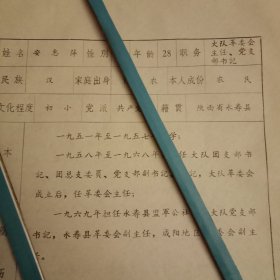 姓名 安忠萍 性别 年龄 28 职务 大队革委会主任、党支部书记
民族 汉 家庭出身 农 本人成份 农民
文化程度 初小 党派 共产 籍贯 陕西省永寿县
一九五一年至一九五七 学;
一九五八年至一九六八年 任大队团支部书
记、团总支委员、党支部副书记 记,大队革委会
成立后,任革委会主任;
一九六九年担任永寿县监军公社 大队党支部
书记,永寿县革委会副主任,咸阳地区 委会副主
任。
本
历